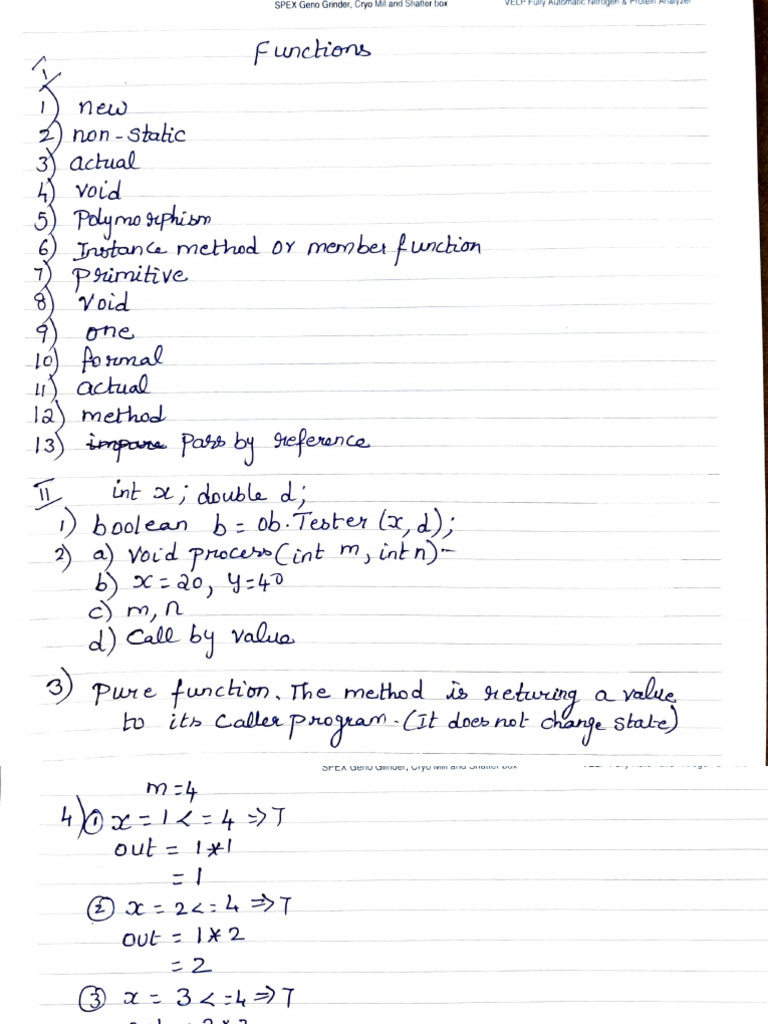 SPEX Geno Grinder, Cryo Mill and Shatter box VELP Fully Automatic Nitrogen & Protein Analyzer
Functions
I
1) new
2) non-static
3) actual
4) void
5) Polymorphism
6) Instance method or member function
7) primitive
8) void
9) one
10) formal
11) actual
12) method
13) impure Pass by reference
II int x; double d;
1) boolean b = ob.Tester (x,d);
2) a) void process(int m, int n)-
b) x=20, y=40
c) m, n
d) Call by value
3) Pure function. The method is returing a value
to its Caller program. (It does not change state)
SPEX Geno Grinder, Cryo Mill and Shatter box
m=4
4) ① x = 1 <= 4 => T
out = 1*1
= 1
② x = 2 <= 4 => T
out = 1*2
= 2
③ x = 3 <= 4 => T